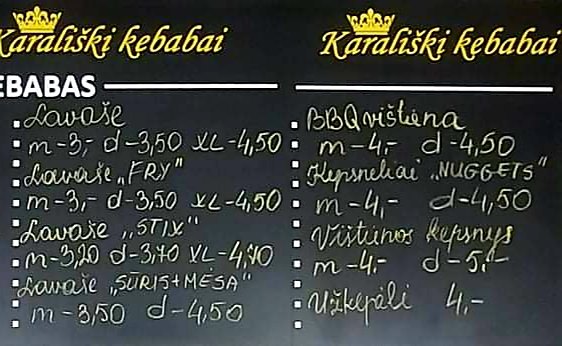 Karališki kebabai
EBABAS
Lavaše
m-3,- d-3,50 XL-4,50
Lavaše „FRY"
m-3,- d-3,50 XL-4,50
Lavaše „STIX"
m-3,20 d-3,70 XL-4,70
Lavaše „SŪRIS+MĖSA"
m-3,50 d-4,50
Karališki kebabai
BBQ vištiena
m-4,- d-4,50
Kepsneliai „NUGGETS"
m-4,- d-4,50
Vištienos kepsnys
m-4.- d-5.-
Užkepėli 4,-